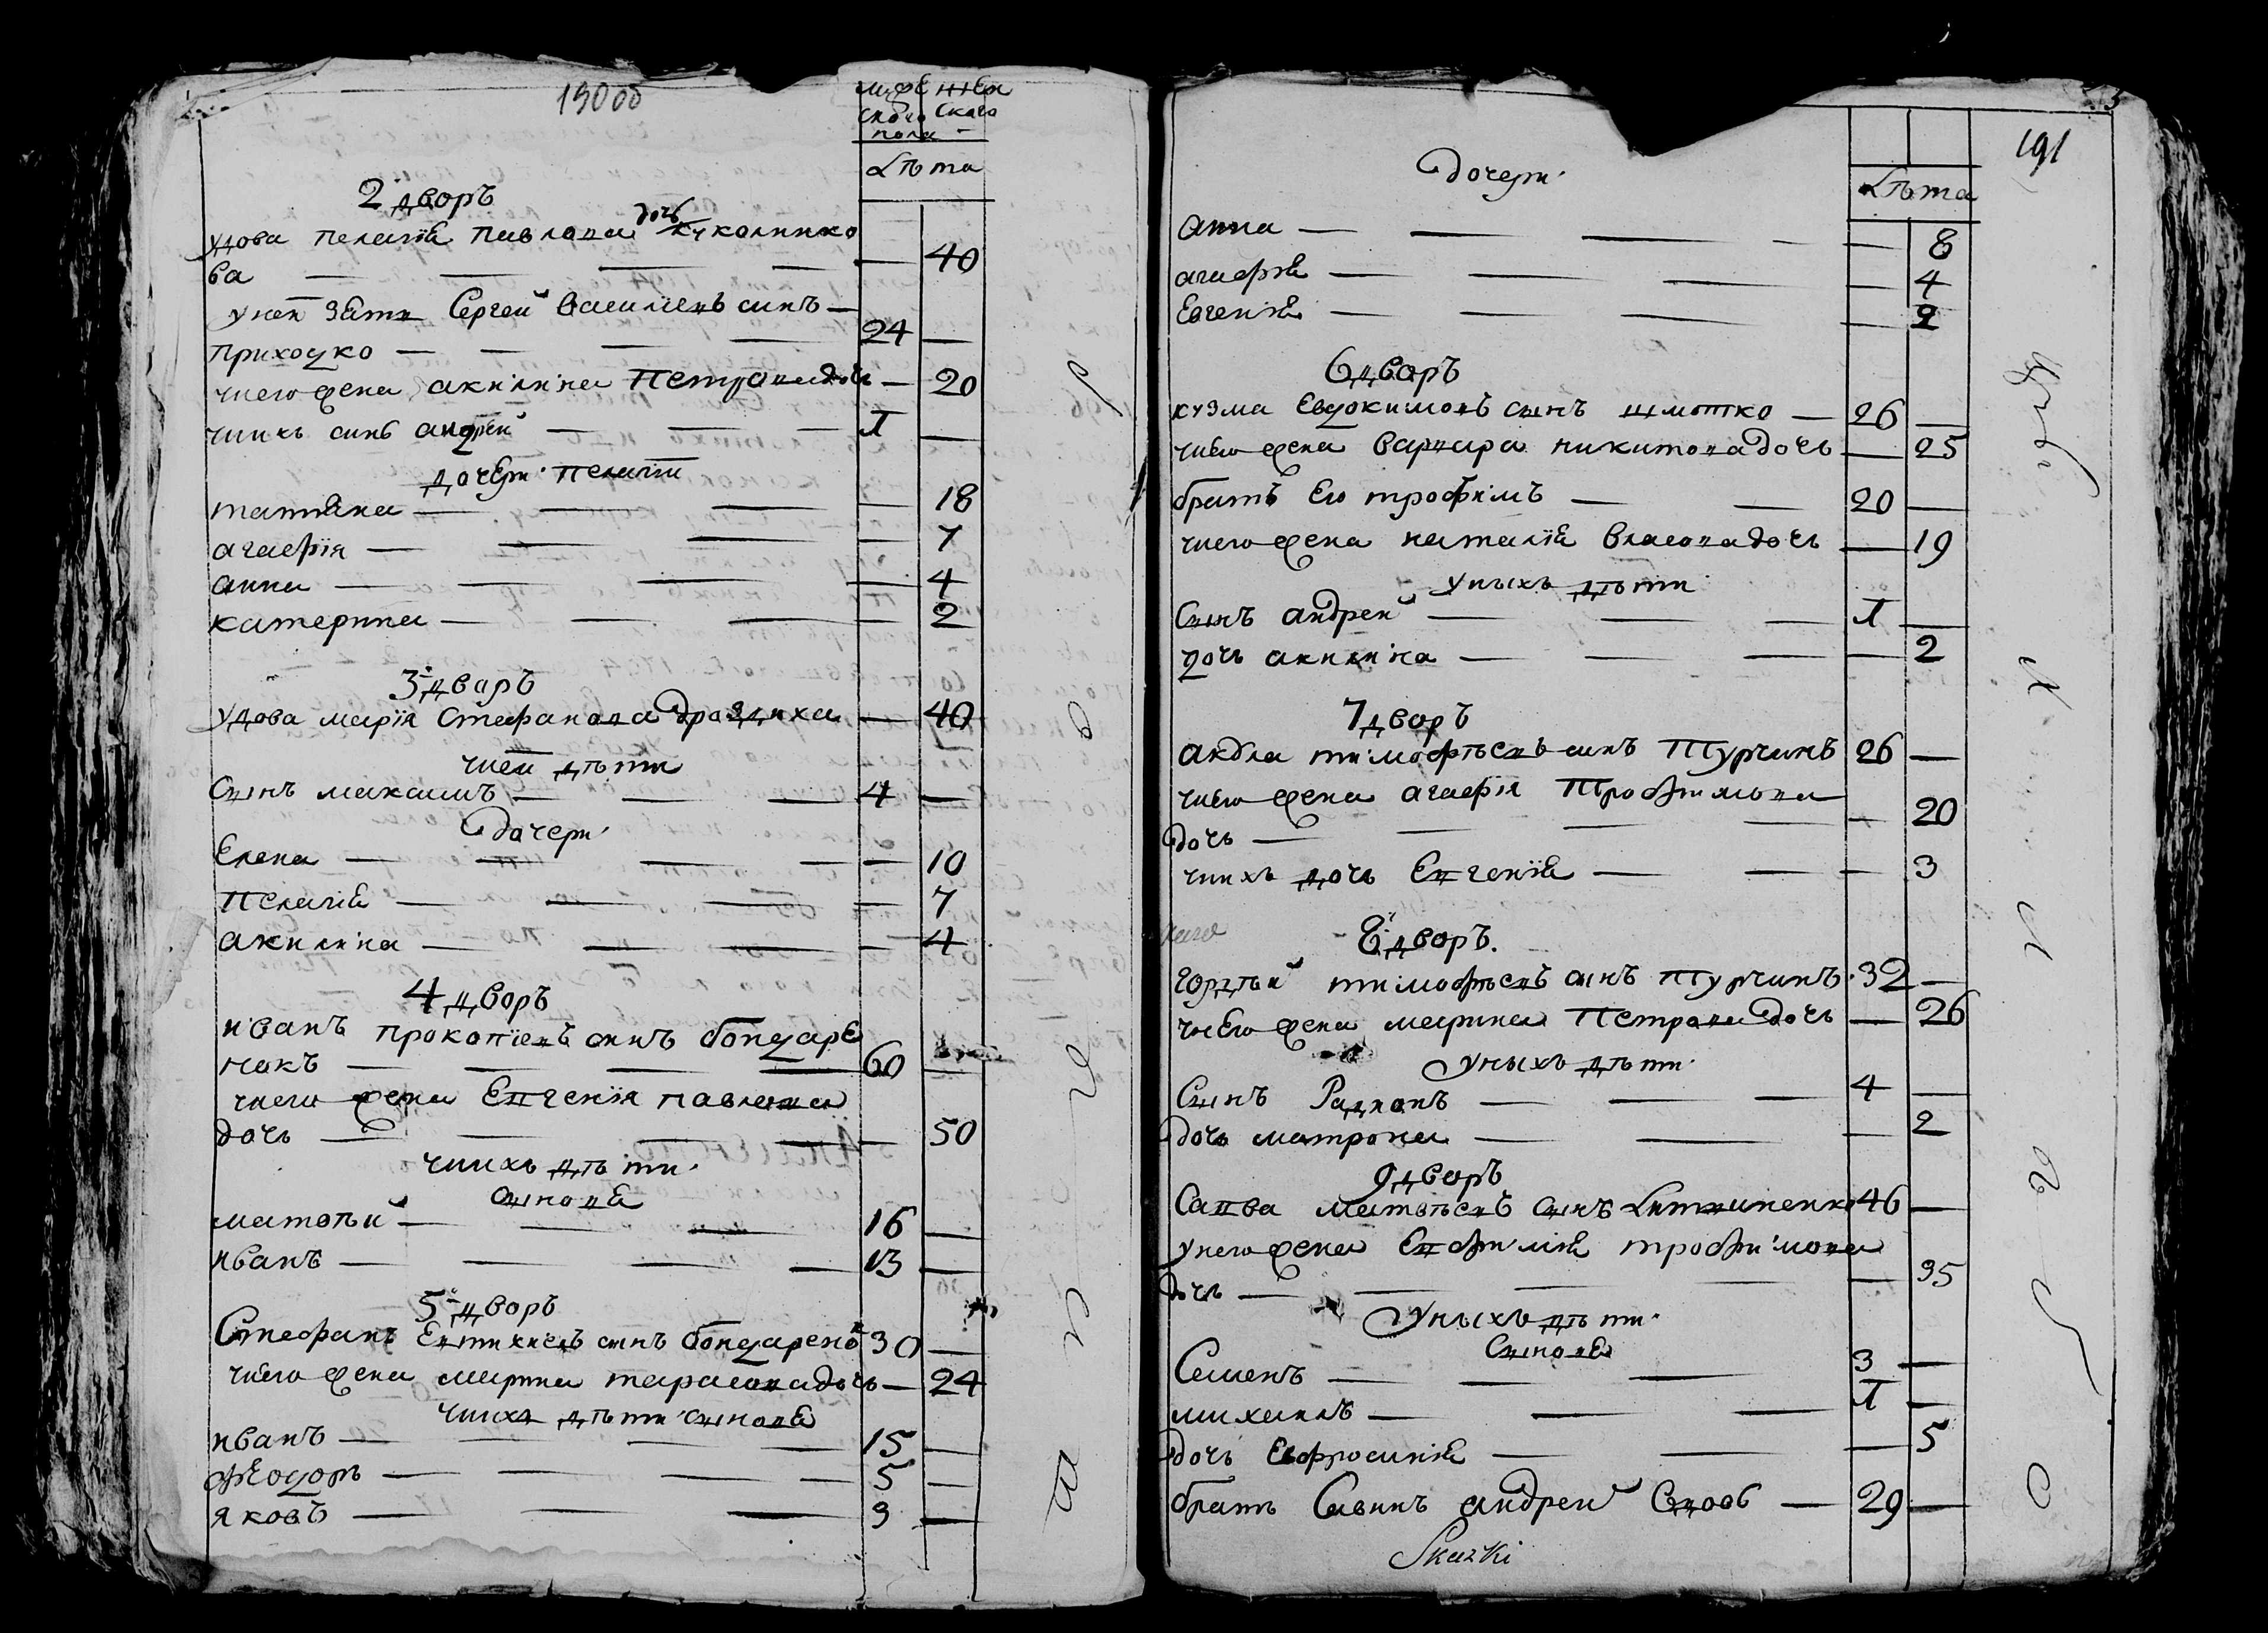 13000
муже жен
ского ского
пола
лѣта
2 дворъ
удова пелагія павлова дочъ куколнико
ва — 40
унеи зять Сергей василіевъ синъ —
приходко — 24
унего жена акилина Петровадочь — 20
унихъ синъ андрей — 1
дочери пелагіи
татіяна — 18
агафія — 7
анна — 4
катерина — 2
3 дворъ
удова марія Стефанова дроздиха — 40
унеи дѣти
Сынъ максимъ — 4
дочери
Елена — 10
Пелагія — 7
акилина — 4
4 дворъ
иванъ прокопіевъ синъ бондаре
нокъ — 60
унего жена Евгенія павлова
дочь — 50
унихъ дѣти
сынове
матвѣй — 16
иванъ — 13
5 дворъ
Стефанъ Евтихиевъ синъ бондаренокъ 30
унего жена марина тарасовадочь — 24
унихъ дѣти сынове
иванъ — 15
феодоръ — 5
яковъ — 3
191
дочери
лѣта
анна — 8
агафія — 4
Евгенія — 2
6 дворъ
кузма Евдокимовъ сынъ шмотко — 26
унего жена варвара никитовадочь — 25
братъ Его трофимъ — 20
унего жена наталія власовадочь — 19
уныхъ дѣти
Сынъ андрей — 1
дочь акилина — 2
7 дворъ
тимофѣевъ синъ Турчинъ 26 —
унего жена агафія Трофимова
дочь — 20
унихъ дочь Евгенія — 3
8 дворъ.
гордѣй тимофѣевъ синъ турчинъ 32 —
унего жена марина Петровадочь — 26
уныхъ дѣти
Сынъ Радионъ — 4
дочь матрона — 2
9 дворъ
Савва матвѣевъ сынъ Литвиненко 46 —
унего жена Евфимія трофимова
дочь — 35
уныхъ дѣти
Сынове
Семенъ — 3
михаилъ — 1
дочь Евфросинія — 5
братъ Савинъ андрей — 29 —
Skazki